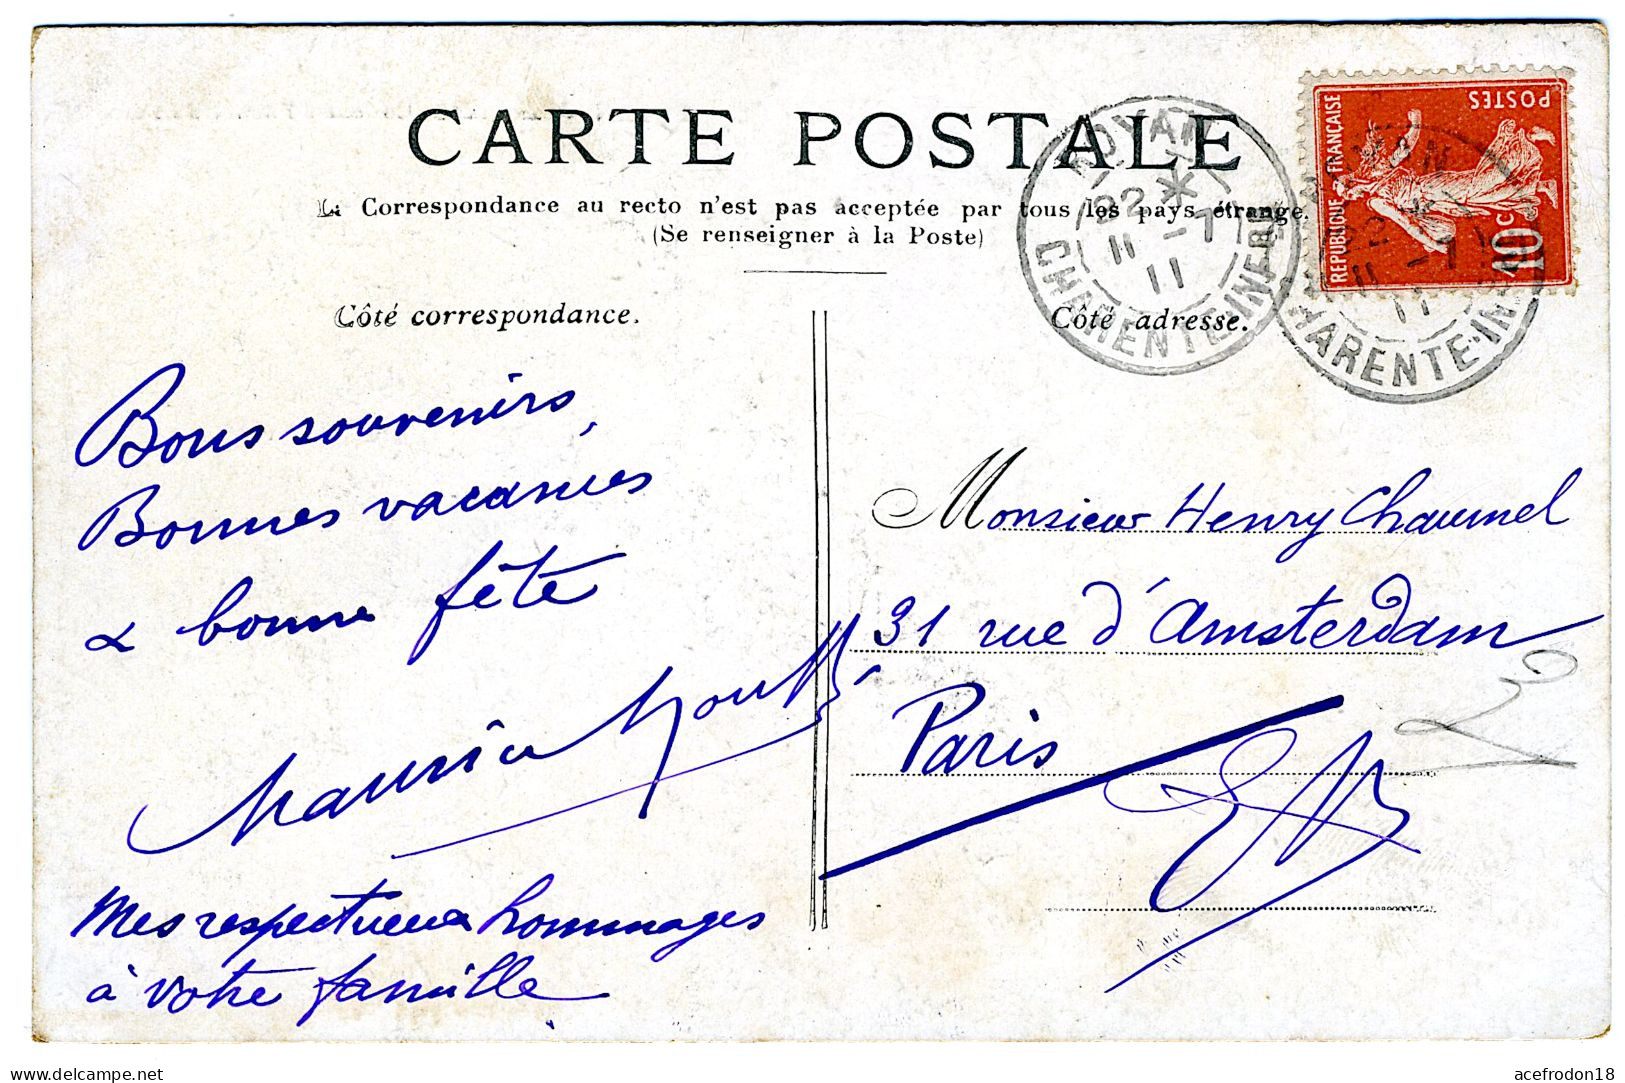 CARTE POSTALE
La Correspondance au recto n'est pas acceptée par tous les pays étrange.
(Se renseigner à la Poste)
Côté correspondance.
Côté adresse.
ROYAN
22 *
11 -7
11
CHARENTE INFRE
REPUBLIQUE FRANÇAISE
POSTES
10c
22
11 -7
11
CHARENTE-IN
Bons souvenirs,
Bonnes vacances
& bonne fête
Maurice
Mes respectueux hommages
à votre famille
Monsieur Henry Chaumel
31 rue d'Amsterdam
Paris
www.delcampe.net
acefrodon18